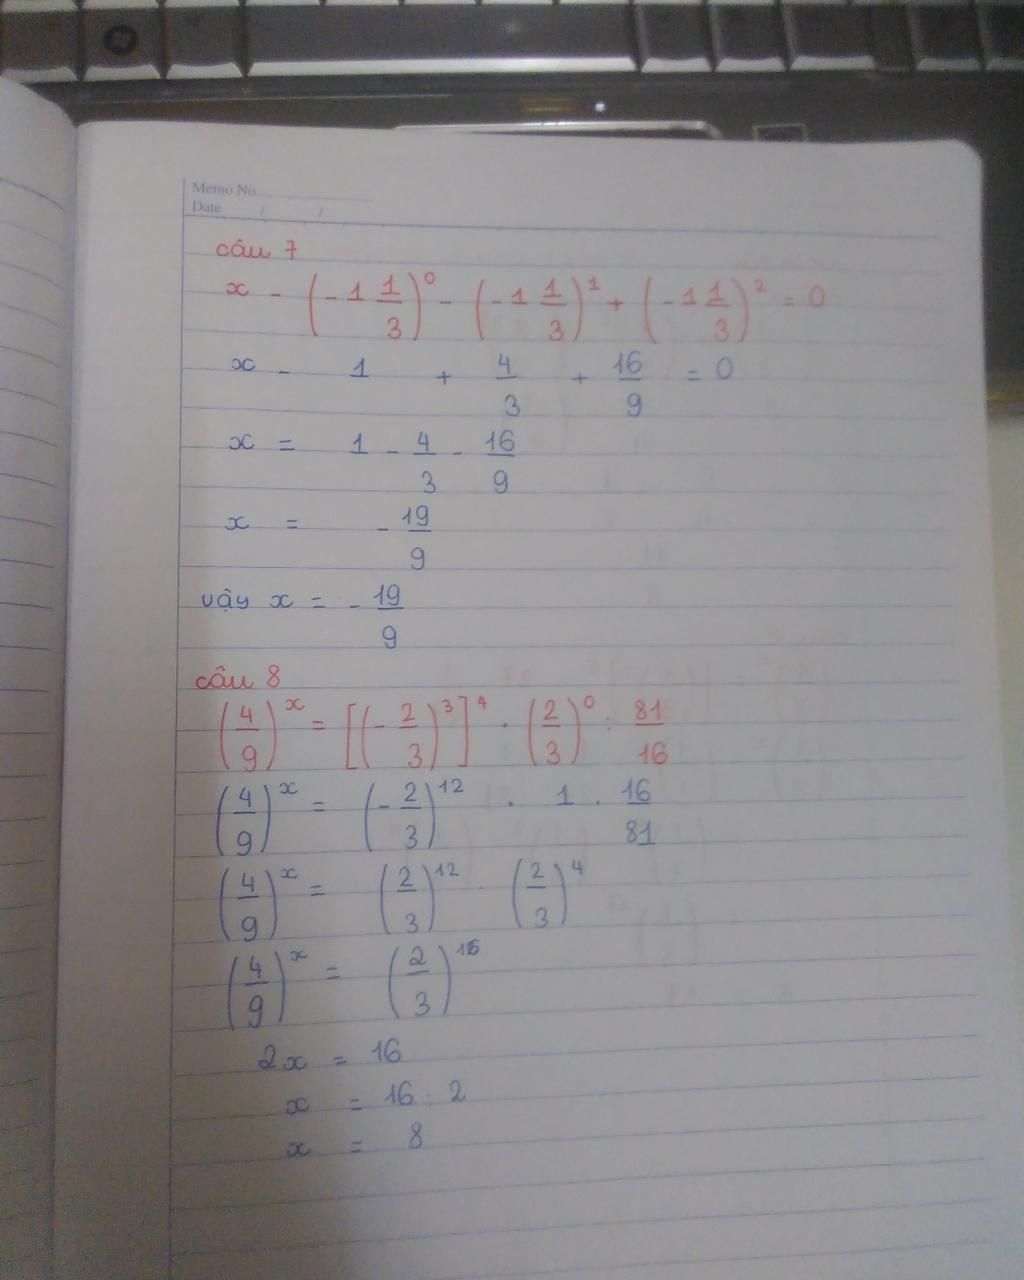 Memo No
Date / /
câu 7
x - (-1 1/3)^0 - (-1 1/3)^1 + (-1 1/3)^2 = 0
x - 1 + 4/3 + 16/9 = 0
x = 1 - 4/3 - 16/9
x = -19/9
vậy x = -19/9
câu 8
(4/9)^x = [(-2/3)^3]^4 . (2/3)^0 : 81/16
(4/9)^x = (-2/3)^12 . 1 . 16/81
(4/9)^x = (2/3)^12 . (2/3)^4
(4/9)^x = (2/3)^16
2x = 16
x = 16 : 2
x = 8